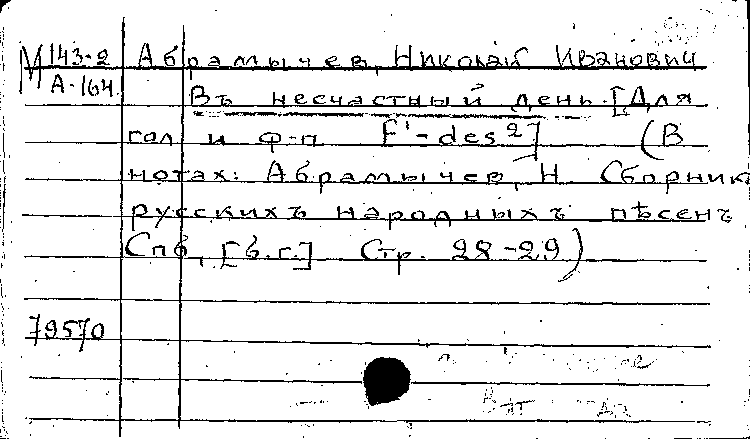 М 143-2 Абрамычев, Николай Иванович
А-164
Въ несчастный день. [Для
гол и ф-п F¹-des²] (В
нотах: Абрамычев, Н Сборник
русскихъ народныхъ пѣсенъ
Спб, [б.г.] Стр. 28-29)
79570